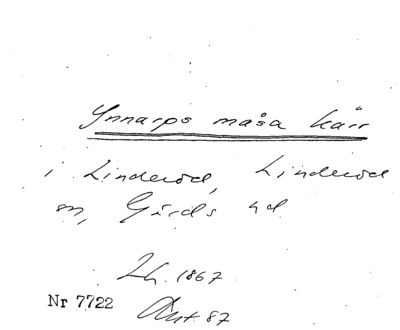 Ynnarps måsa kärr
i Linderöd, Linderöd
sn, Gärds hd
Lh. 1867
Nr 7722
87